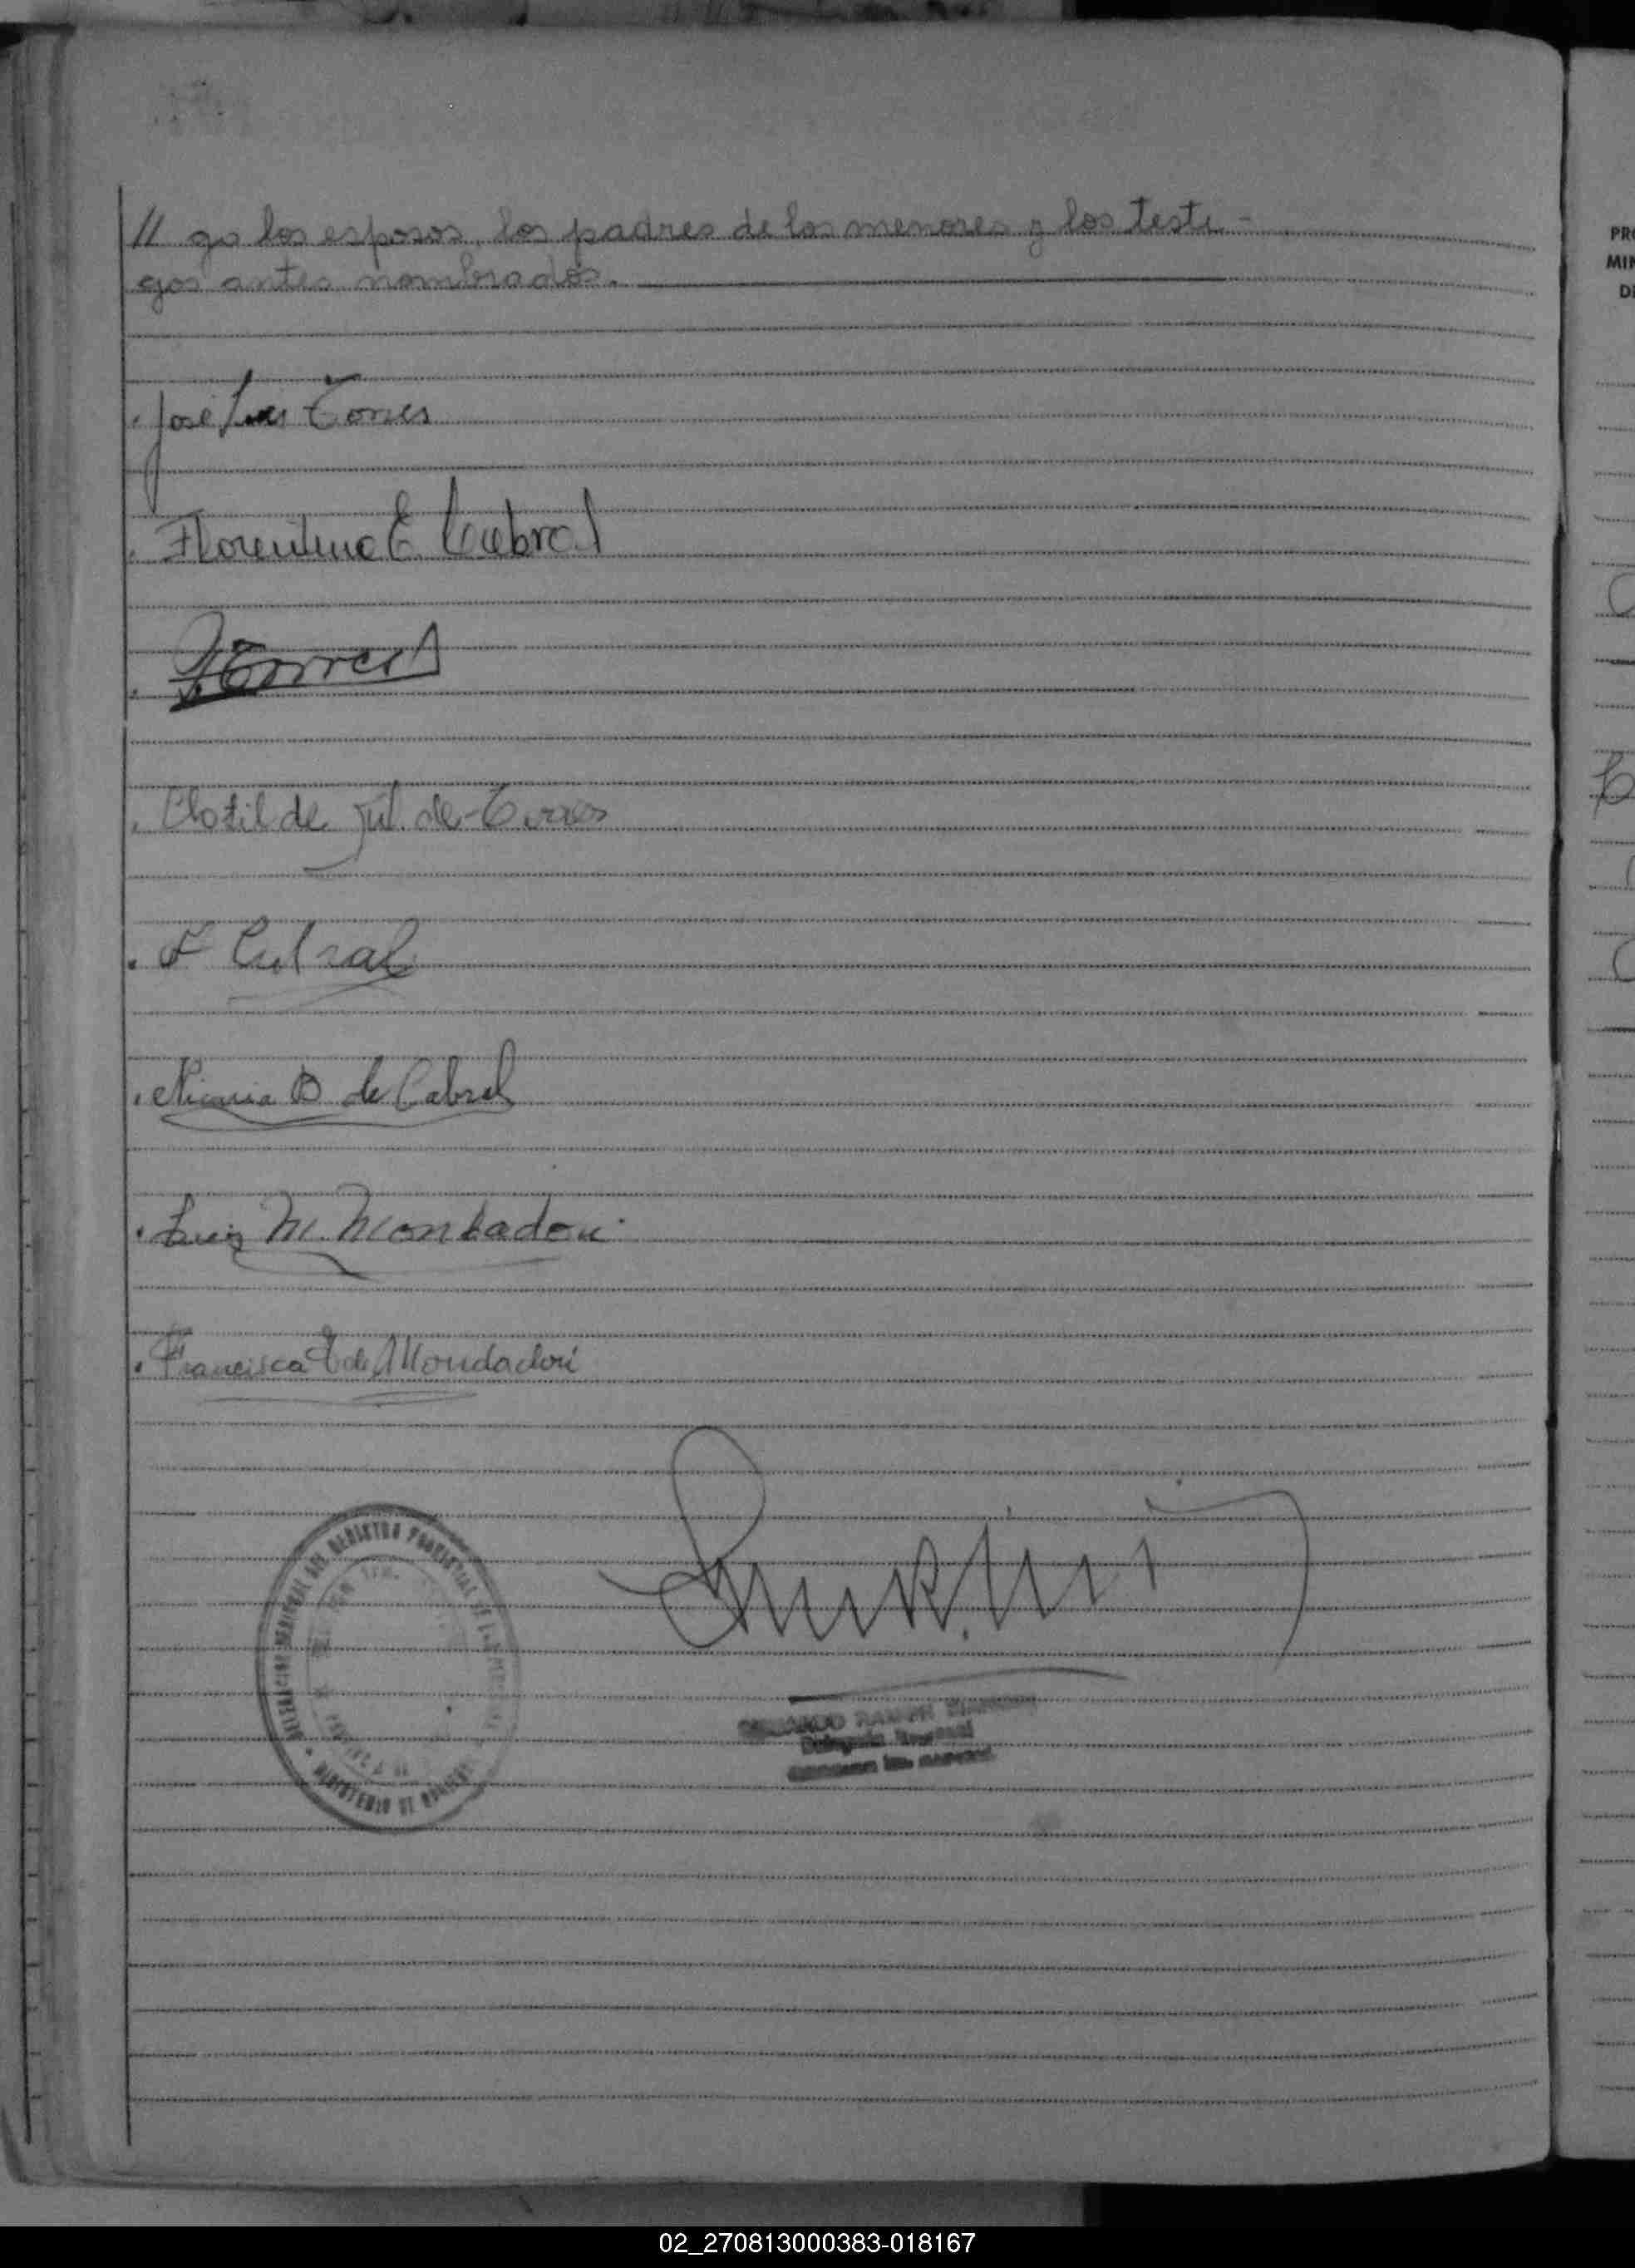 // go los esposos, los padres de los menores y los testi-
gos antes nombrados.
José Luis Torres
Florentino E. Cabral
Torres
Clotilde de Torres
F Cabral
B de Cabral
Luis M. Mondadori
Francisca de Mondadori
DELEGACION REGIONAL DEL REGISTRO PROVINCIAL DE LAS PERSONAS
MINISTERIO DE GOBIERNO
EDUARDO
Delegado Regional
PRO
MIN
DE
02_270813000383-018167